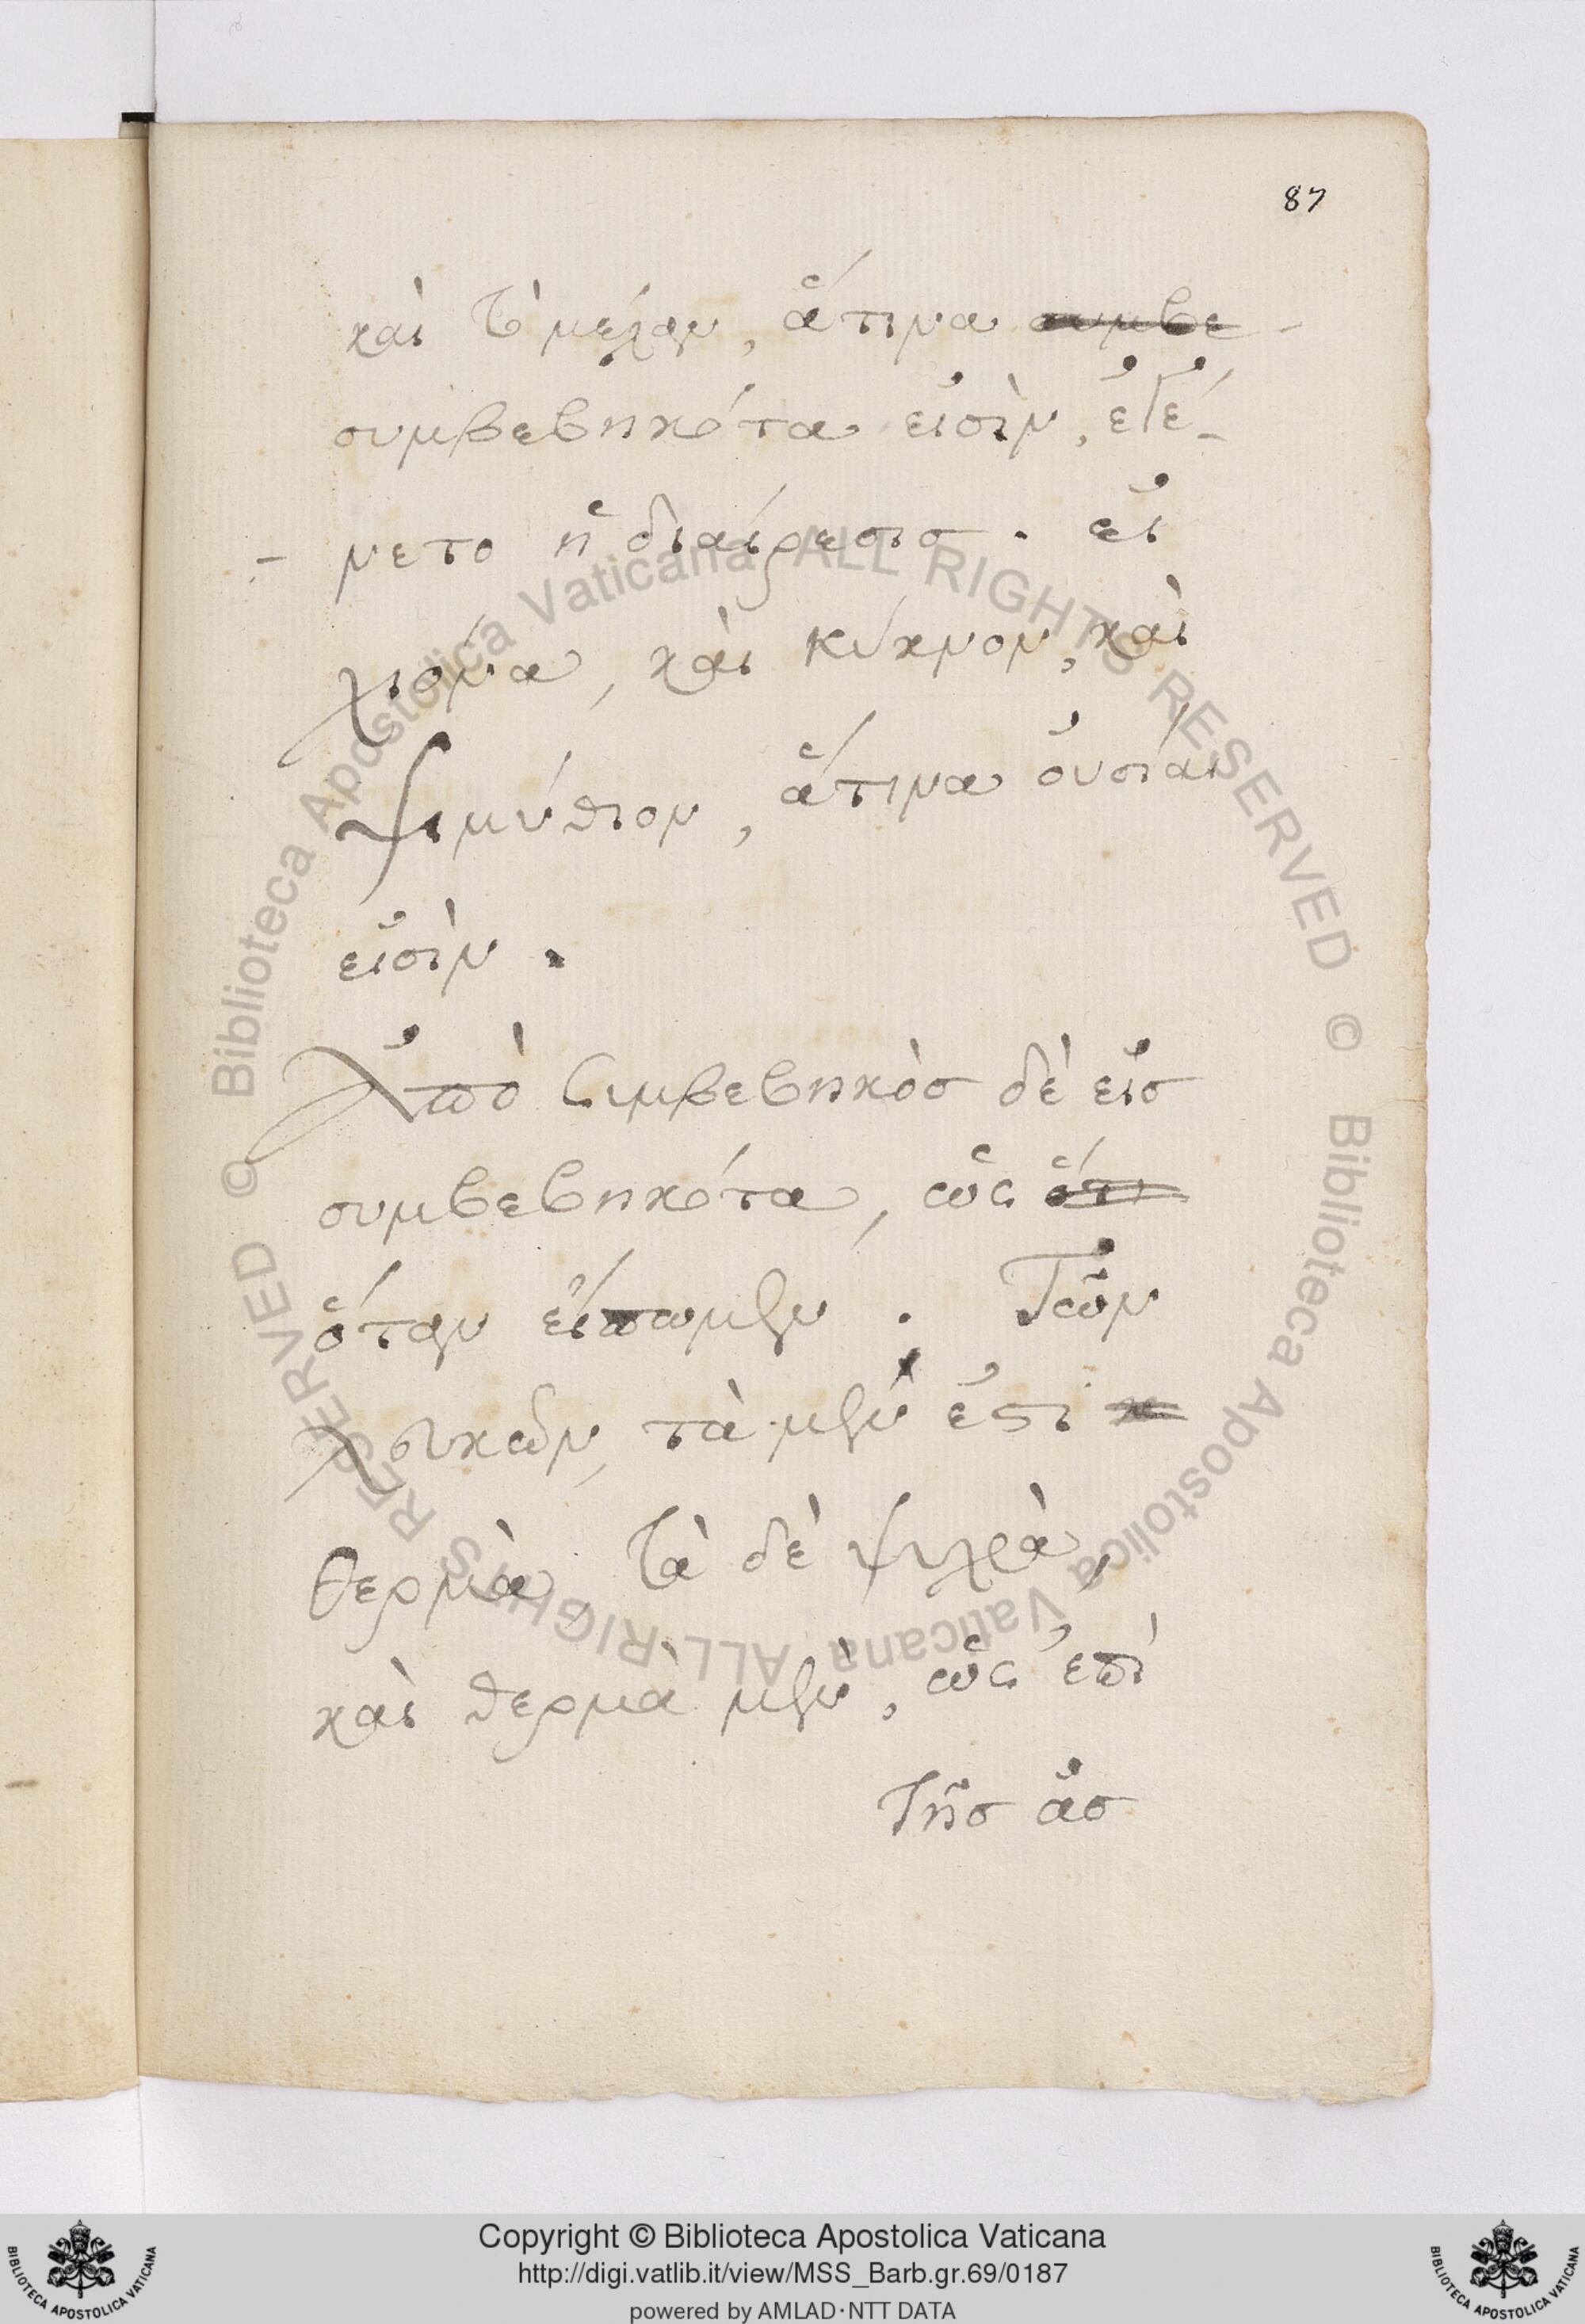 87
καὶ τὸ μέλαν, ἅτινα συμβε-
συμβεβηκότα εἰσὶν, ἐγέ-
- νετο ἡ διαίρεσισ. εἰ
χιόνα, καὶ κύκνον, καὶ
ψιμύθιον, ἅτινα οὐσίαι
εἰσὶν.
Ἀπὸ Συμβεβηκὸσ δὲ εἰσ
συμβεβηκότα, ὡς ὅτι
ὅταν εἴπωμεν. Τῶν
λευκῶν, τὰ μὲν ἐστι κ
θερμὰ, τὰ δὲ ψυχρὰ,
καὶ θερμὰ μὲν, ὡς ἐπὶ
Τῆσ ἀσ
Biblioteca Apostolica Vaticana ALL RIGHTS RESERVED © Biblioteca Apostolica Vaticana ALL RIGHTS RESERVED ©
Copyright © Biblioteca Apostolica Vaticana
http://digi.vatlib.it/view/MSS_Barb.gr.69/0187
powered by AMLAD·NTT DATA
BIBLIOTECA APOSTOLICA VATICANA
BIBLIOTECA APOSTOLICA VATICANA